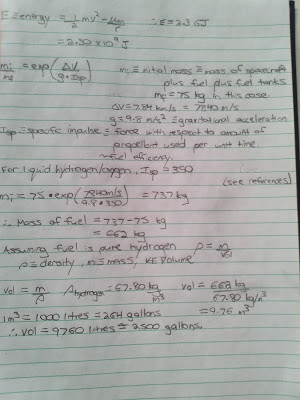 E ≡ energy = 1/2 mv² - GMm/r ∴ E = 2.3 GJ
= 2.32 × 10⁹ J
mi/mf = exp(ΔV/g·Isp) mi ≡ initial mass ≡ mass of spacecraft
plus fuel plus fuel tanks
mf = 75 kg in this case
ΔV = 7.84 km/s = 7840 m/s
g = 9.8 m/s² ≡ gravitational acceleration
Isp ≡ specific impulse ≡ force with respect to amount of
propellant used per unit time
~ fuel efficiency.
For liquid hydrogen/oxygen, Isp ≈ 350
(see references)
mi = 75 · exp(7840m/s / 9.8·350) = 737 kg
∴ Mass of fuel = 737-75 kg
= 662 kg
Assuming fuel is pure hydrogen ρ = m/vol
ρ ≡ density, m ≡ mass, vol ≡ volume
vol = m/ρ ρhydrogen = 67.80 kg/m³ vol = 662 kg / 67.80 kg/m³
= 9.76 m³
1m³ = 1000 litres = 264 gallons
∴ vol = 9760 litres ≈ 2500 gallons.